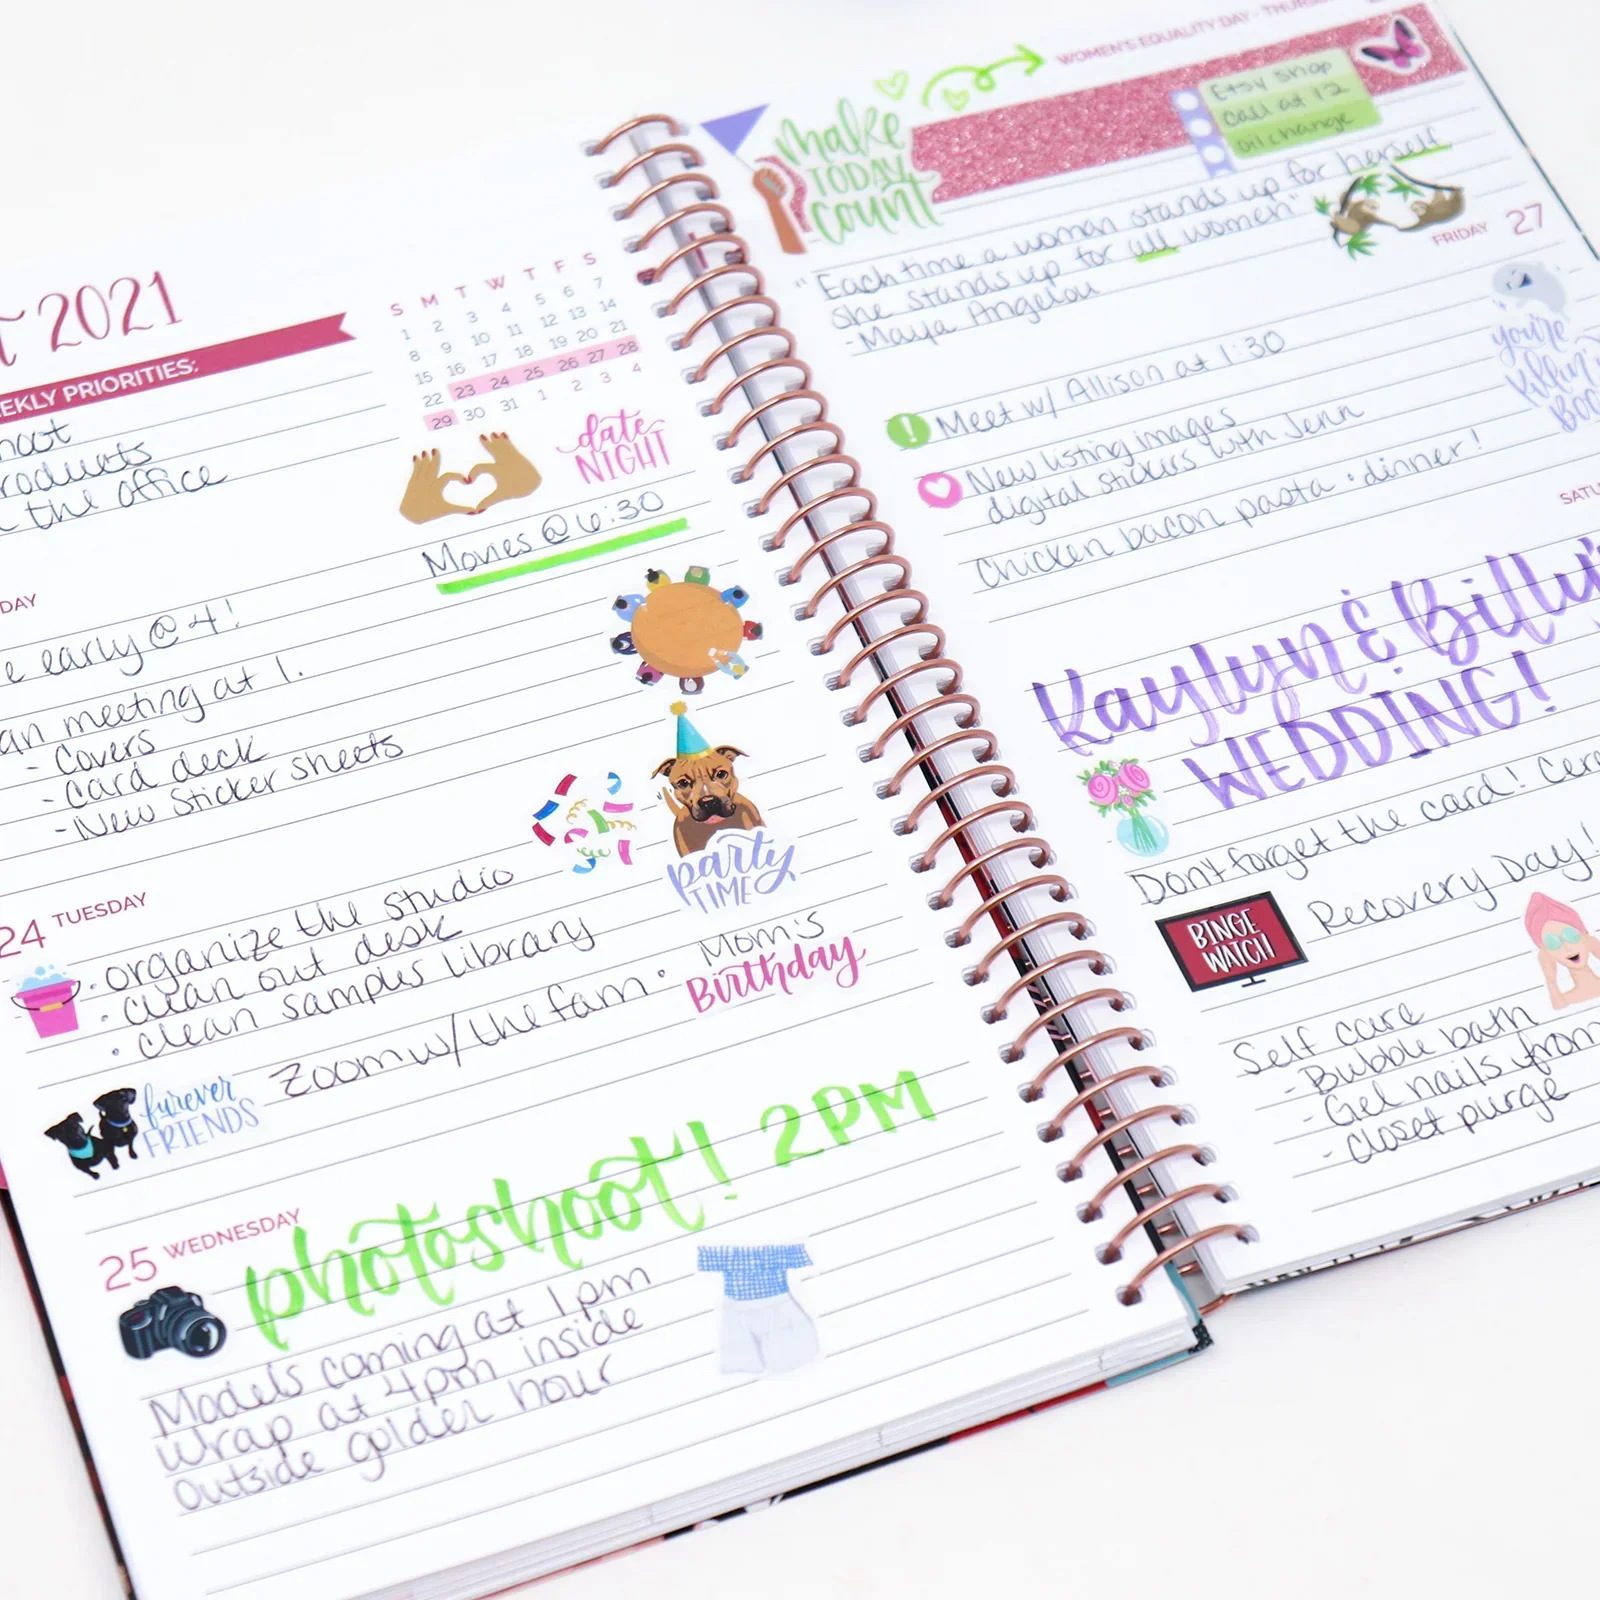 T 2021
EKLY PRIORITIES:
hoot
roducts
the office
S M T W T F S
1 2 3 4 5 6 7
8 9 10 11 12 13 14
15 16 17 18 19 20 21
22 23 24 25 26 27 28
29 30 31 1 2 3 4
date
NIGHT
Movies @ 6:30
DAY
e early @ 4!
an meeting at 1.
- Covers
- Card deck
- New Sticker sheets
party
TIME
24 TUESDAY
• organize the studio
• clean out desk
• clean samples library
Mom's
Birthday
Zoom w/ the fam •
furever
FRIENDS
25 WEDNESDAY
photoshoot! 2PM
Models coming at 1pm
Wrap at 4pm inside
Outside golden hour
WOMEN'S EQUALITY DAY - THURS
make
TODAY
count
Etsy shop
call at 12
oil change
"Each time a woman stands up for herself,
she stands up for all women"
- Maya Angelou
FRIDAY 27
you're
killin'
BOO
! Meet w/ Allison at 1:30
New listing images
digital stickers with Jenn
Chicken bacon pasta • dinner!
SATU
Kaylyn & Billy's
WEDDING!
Don't forget the card! Cere
BINGE
WATCH
Recovery Day!
Self care
- Bubble bath
- Gel nails from
- closet purge